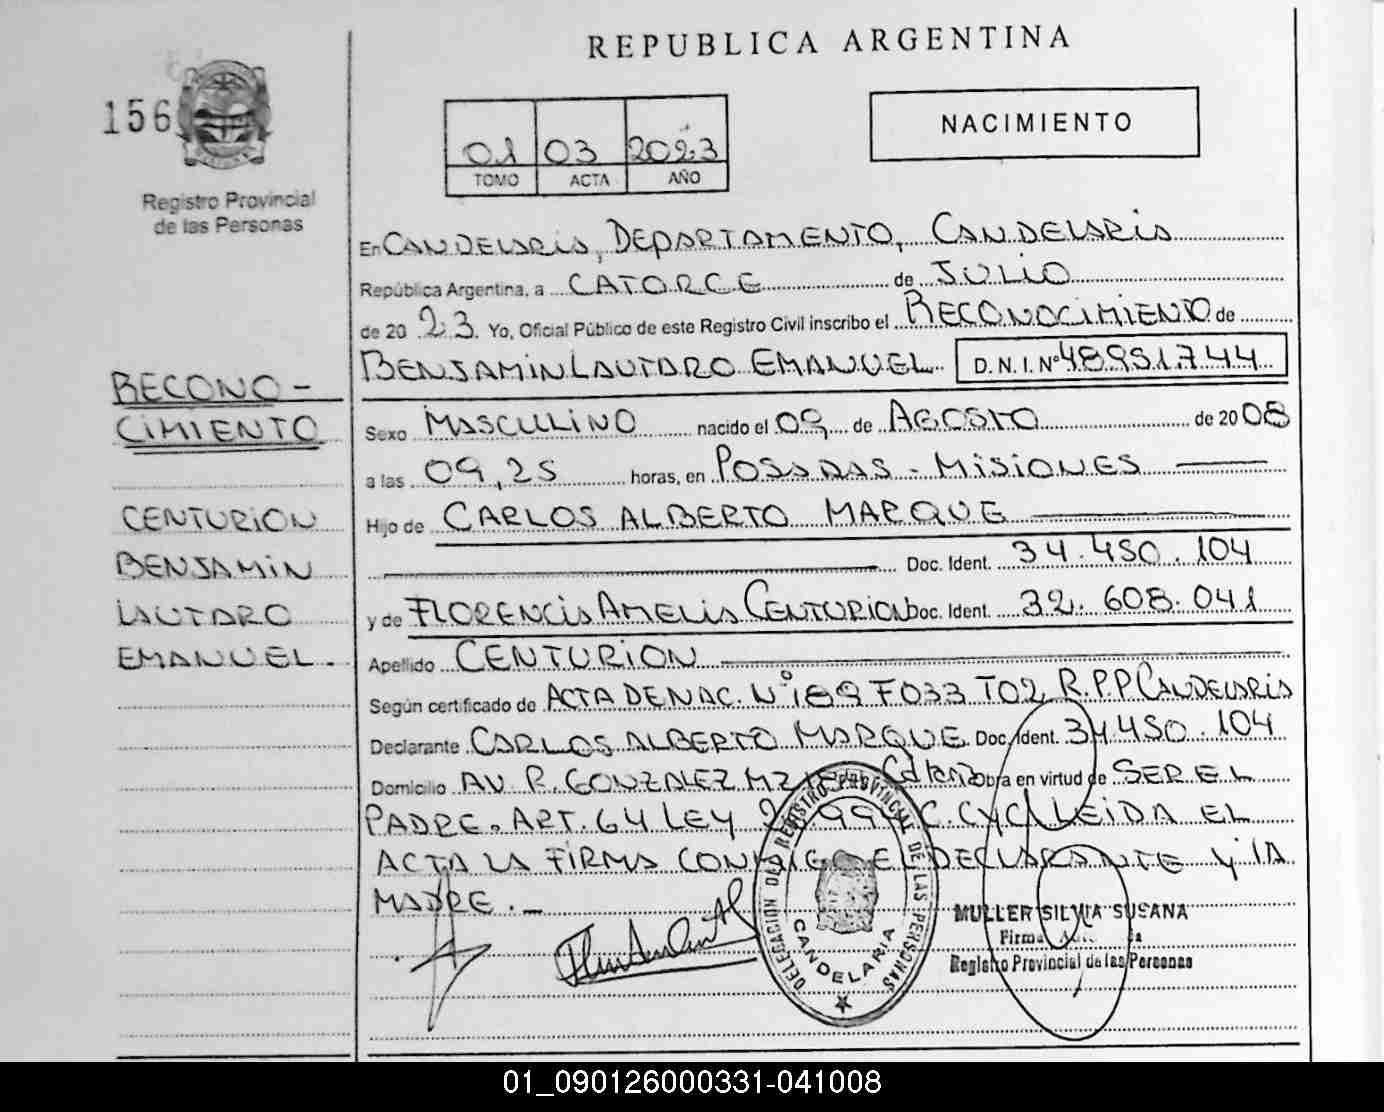 REPUBLICA ARGENTINA
156
Registro Provincial
de las Personas
01 03 2023
TOMO ACTA AÑO
NACIMIENTO
En CANDELARIA, DEPARTAMENTO, CANDELARIA
República Argentina, a CATORCE de JULIO
de 20 23. Yo, Oficial Público de este Registro Civil inscribo el RECONOCIMIENTO de
BENJAMIN LAUTARO EMANUEL D.N.I. Nº 48951744
RECONO-
CIMIENTO
CENTURION
BENJAMIN
LAUTARO
EMANUEL.
Sexo MASCULINO nacido el 09 de AGOSTO de 2008
a las 09,25 horas, en POSADAS - MISIONES
Hijo de CARLOS ALBERTO MARQUE
Doc. Ident. 34.450.104
y de FLORENCIA AMELIA CENTURION Doc. Ident. 32.608.041
Apellido CENTURION
Según certificado de ACTA DE NAC. Nº 189 F033 T02 R.P.P. CANDELARIA
Declarante CARLOS ALBERTO MARQUE Doc. Ident. 34.450.104
Domicilio AV. R. GONZALEZ MZ Obra en virtud de SER EL
PADRE. ART. 64 LEY C. CYC LEIDA EL
ACTA LA FIRMA CONMIGO EL DECLARANTE Y LA
MADRE.-
DELEGACION DEL REGISTRO PROVINCIAL DE LAS PERSONAS
CANDELARIA
MULLER SILVIA SUSANA
Firma
Registro Provincial de las Personas
01_090126000331-041008